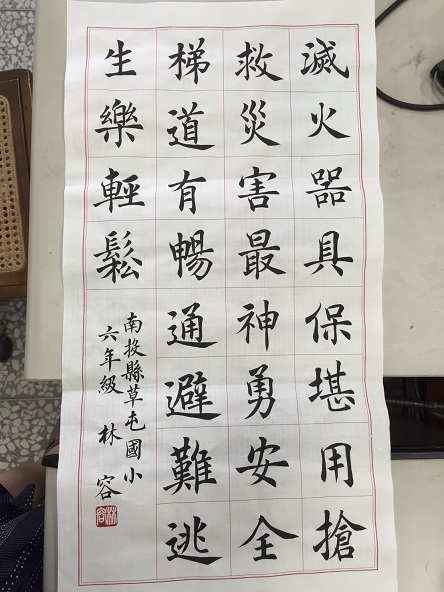 滅火器具保堪用搶
救災害最神勇安全
梯道有暢通避難逃
生樂輕鬆
南投縣草屯國小
六年級 林容
林容